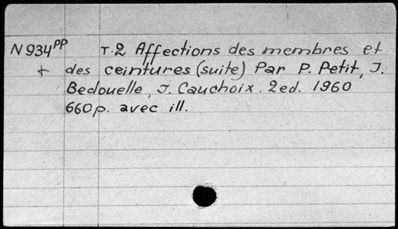 N934PP T.2 Affections des membres et
+ des ceintures (suite) Par P. Petit, J.
Bedouelle, J. Cauchoix. 2ed. 1960
660p. avec ill.